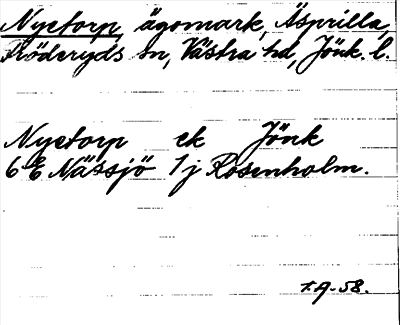 Nyetorp, ägomark, Äsprilla,
Fröderyds sn, Västra hd, Jönk. l.
Nyetorp ek Jönk
6 E Nässjö 1 j Rosenholm.
1.9.58.